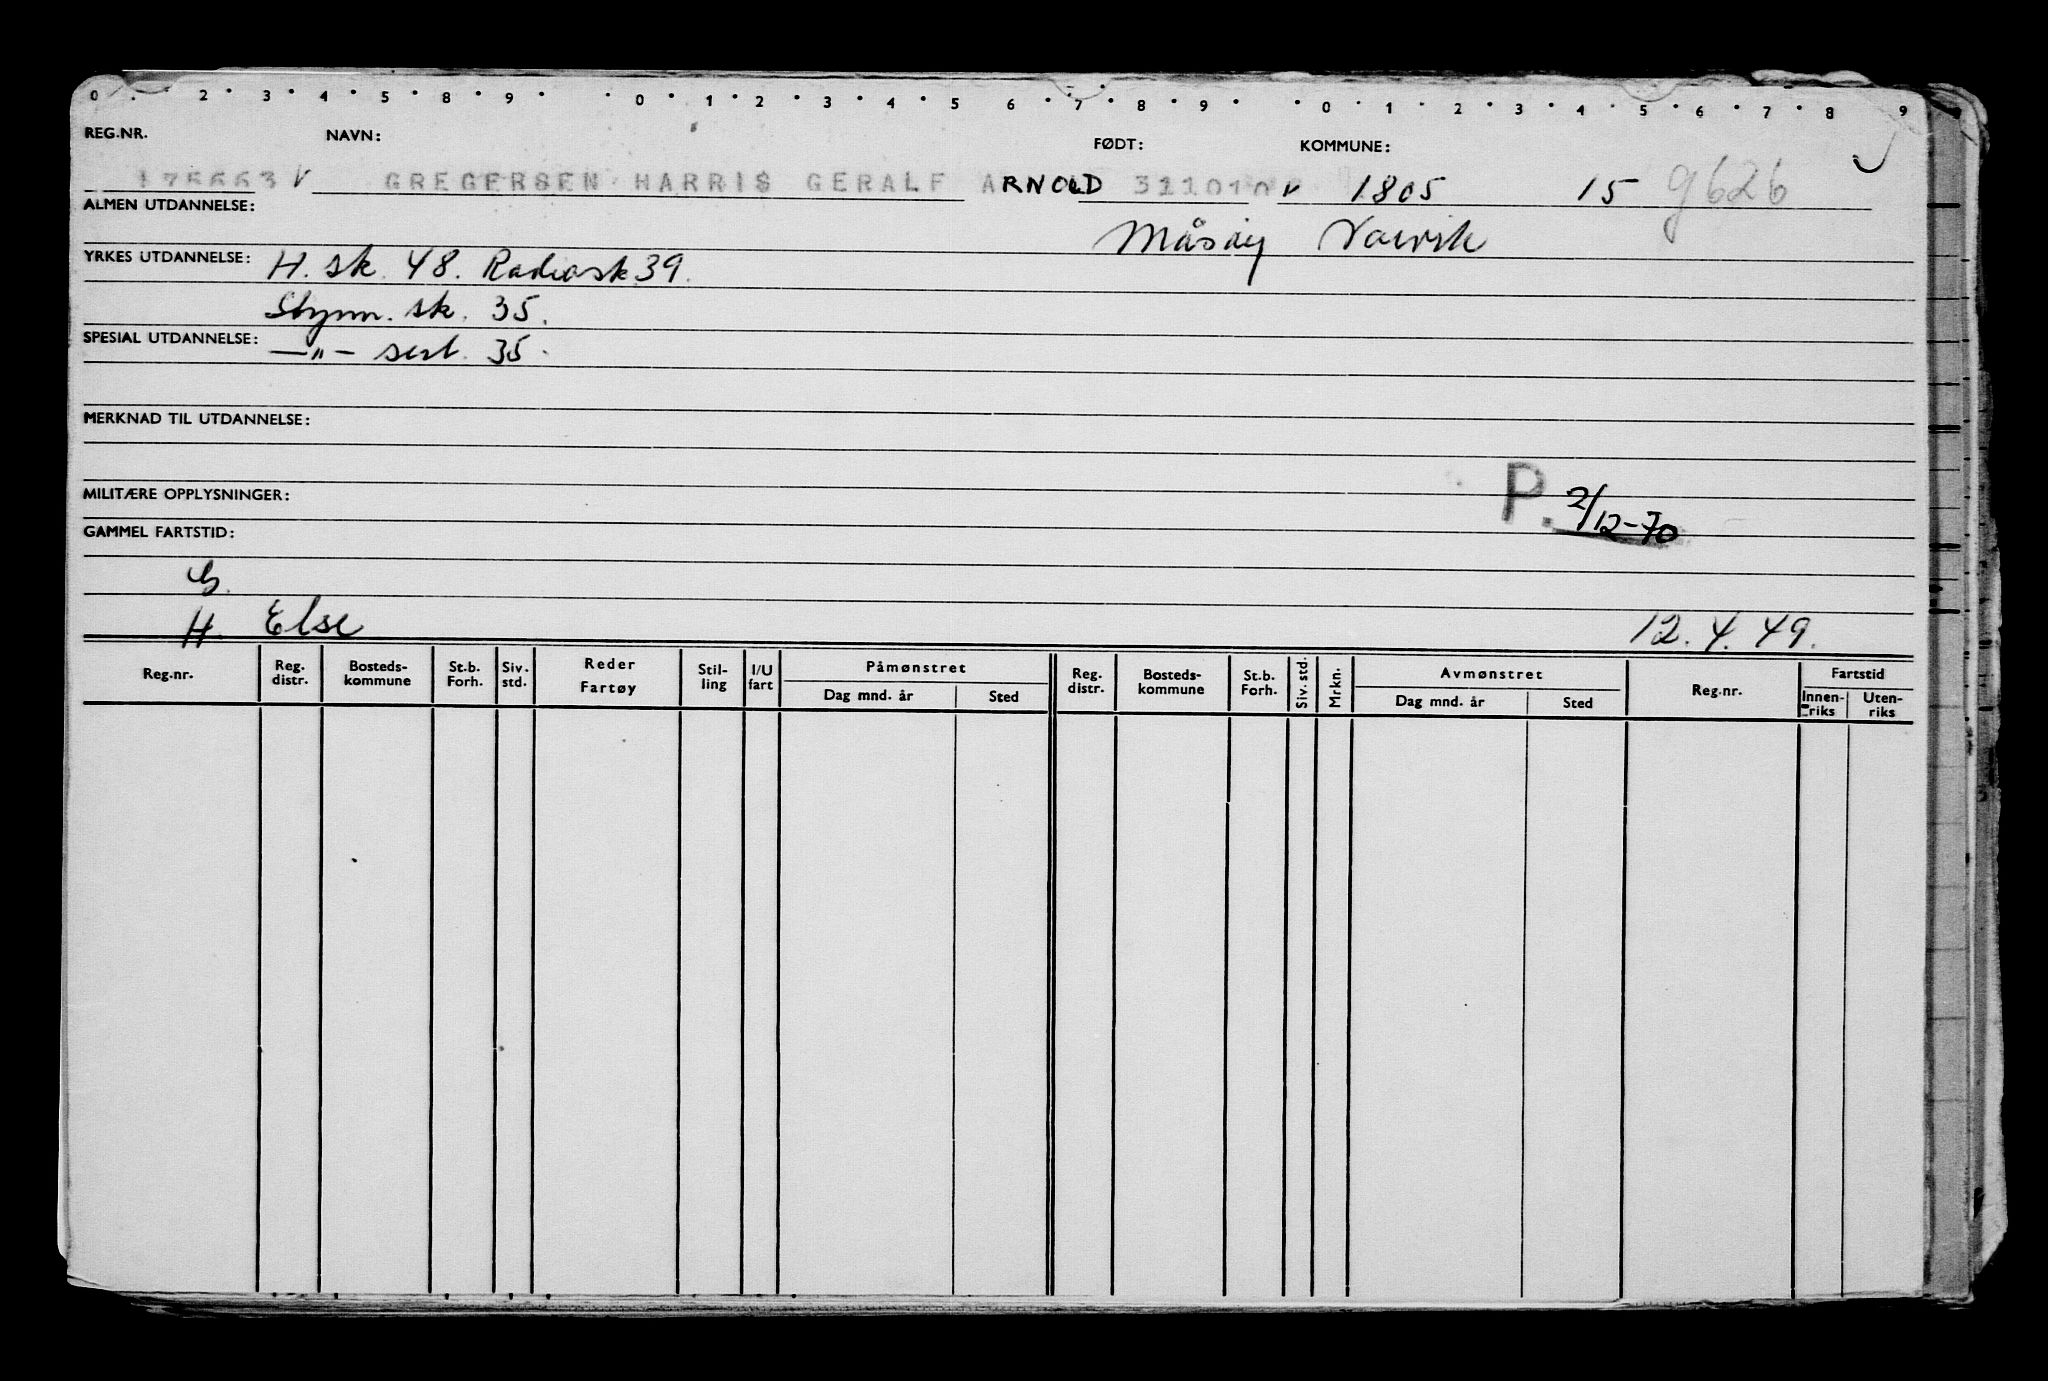 0 2 3 4 5 8 9 0 1 2 3 4 5 6 7 8 9 0 1 2 3 4 5 6 7 8 9
REG.NR. NAVN: FØDT: KOMMUNE:
175663 V GREGERSEN HARRIS GERALF ARNOLD v 1805 15 9626
ALMEN UTDANNELSE: Måsøy Narvik
YRKES UTDANNELSE: H. sk. 48. Radiosk 39.
Styrm. sk. 35.
SPESIAL UTDANNELSE: —"— sert. 35.
MERKNAD TIL UTDANNELSE:
MILITÆRE OPPLYSNINGER: P. 2/12-70
GAMMEL FARTSTID:
G.
H. Else 12.4.49.
Reg.nr. Reg. distr. Bosteds- kommune St.b. Forh. Siv. std. Reder Fartøy Stil- ling I/U fart Påmønstret Dag mnd. år Sted Reg. distr. Bosteds- kommune St.b. Forh. Siv. std. Mrkn. Avmønstret Dag mnd. år Sted Reg.nr. Fartstid Innen- riks Uten- riks